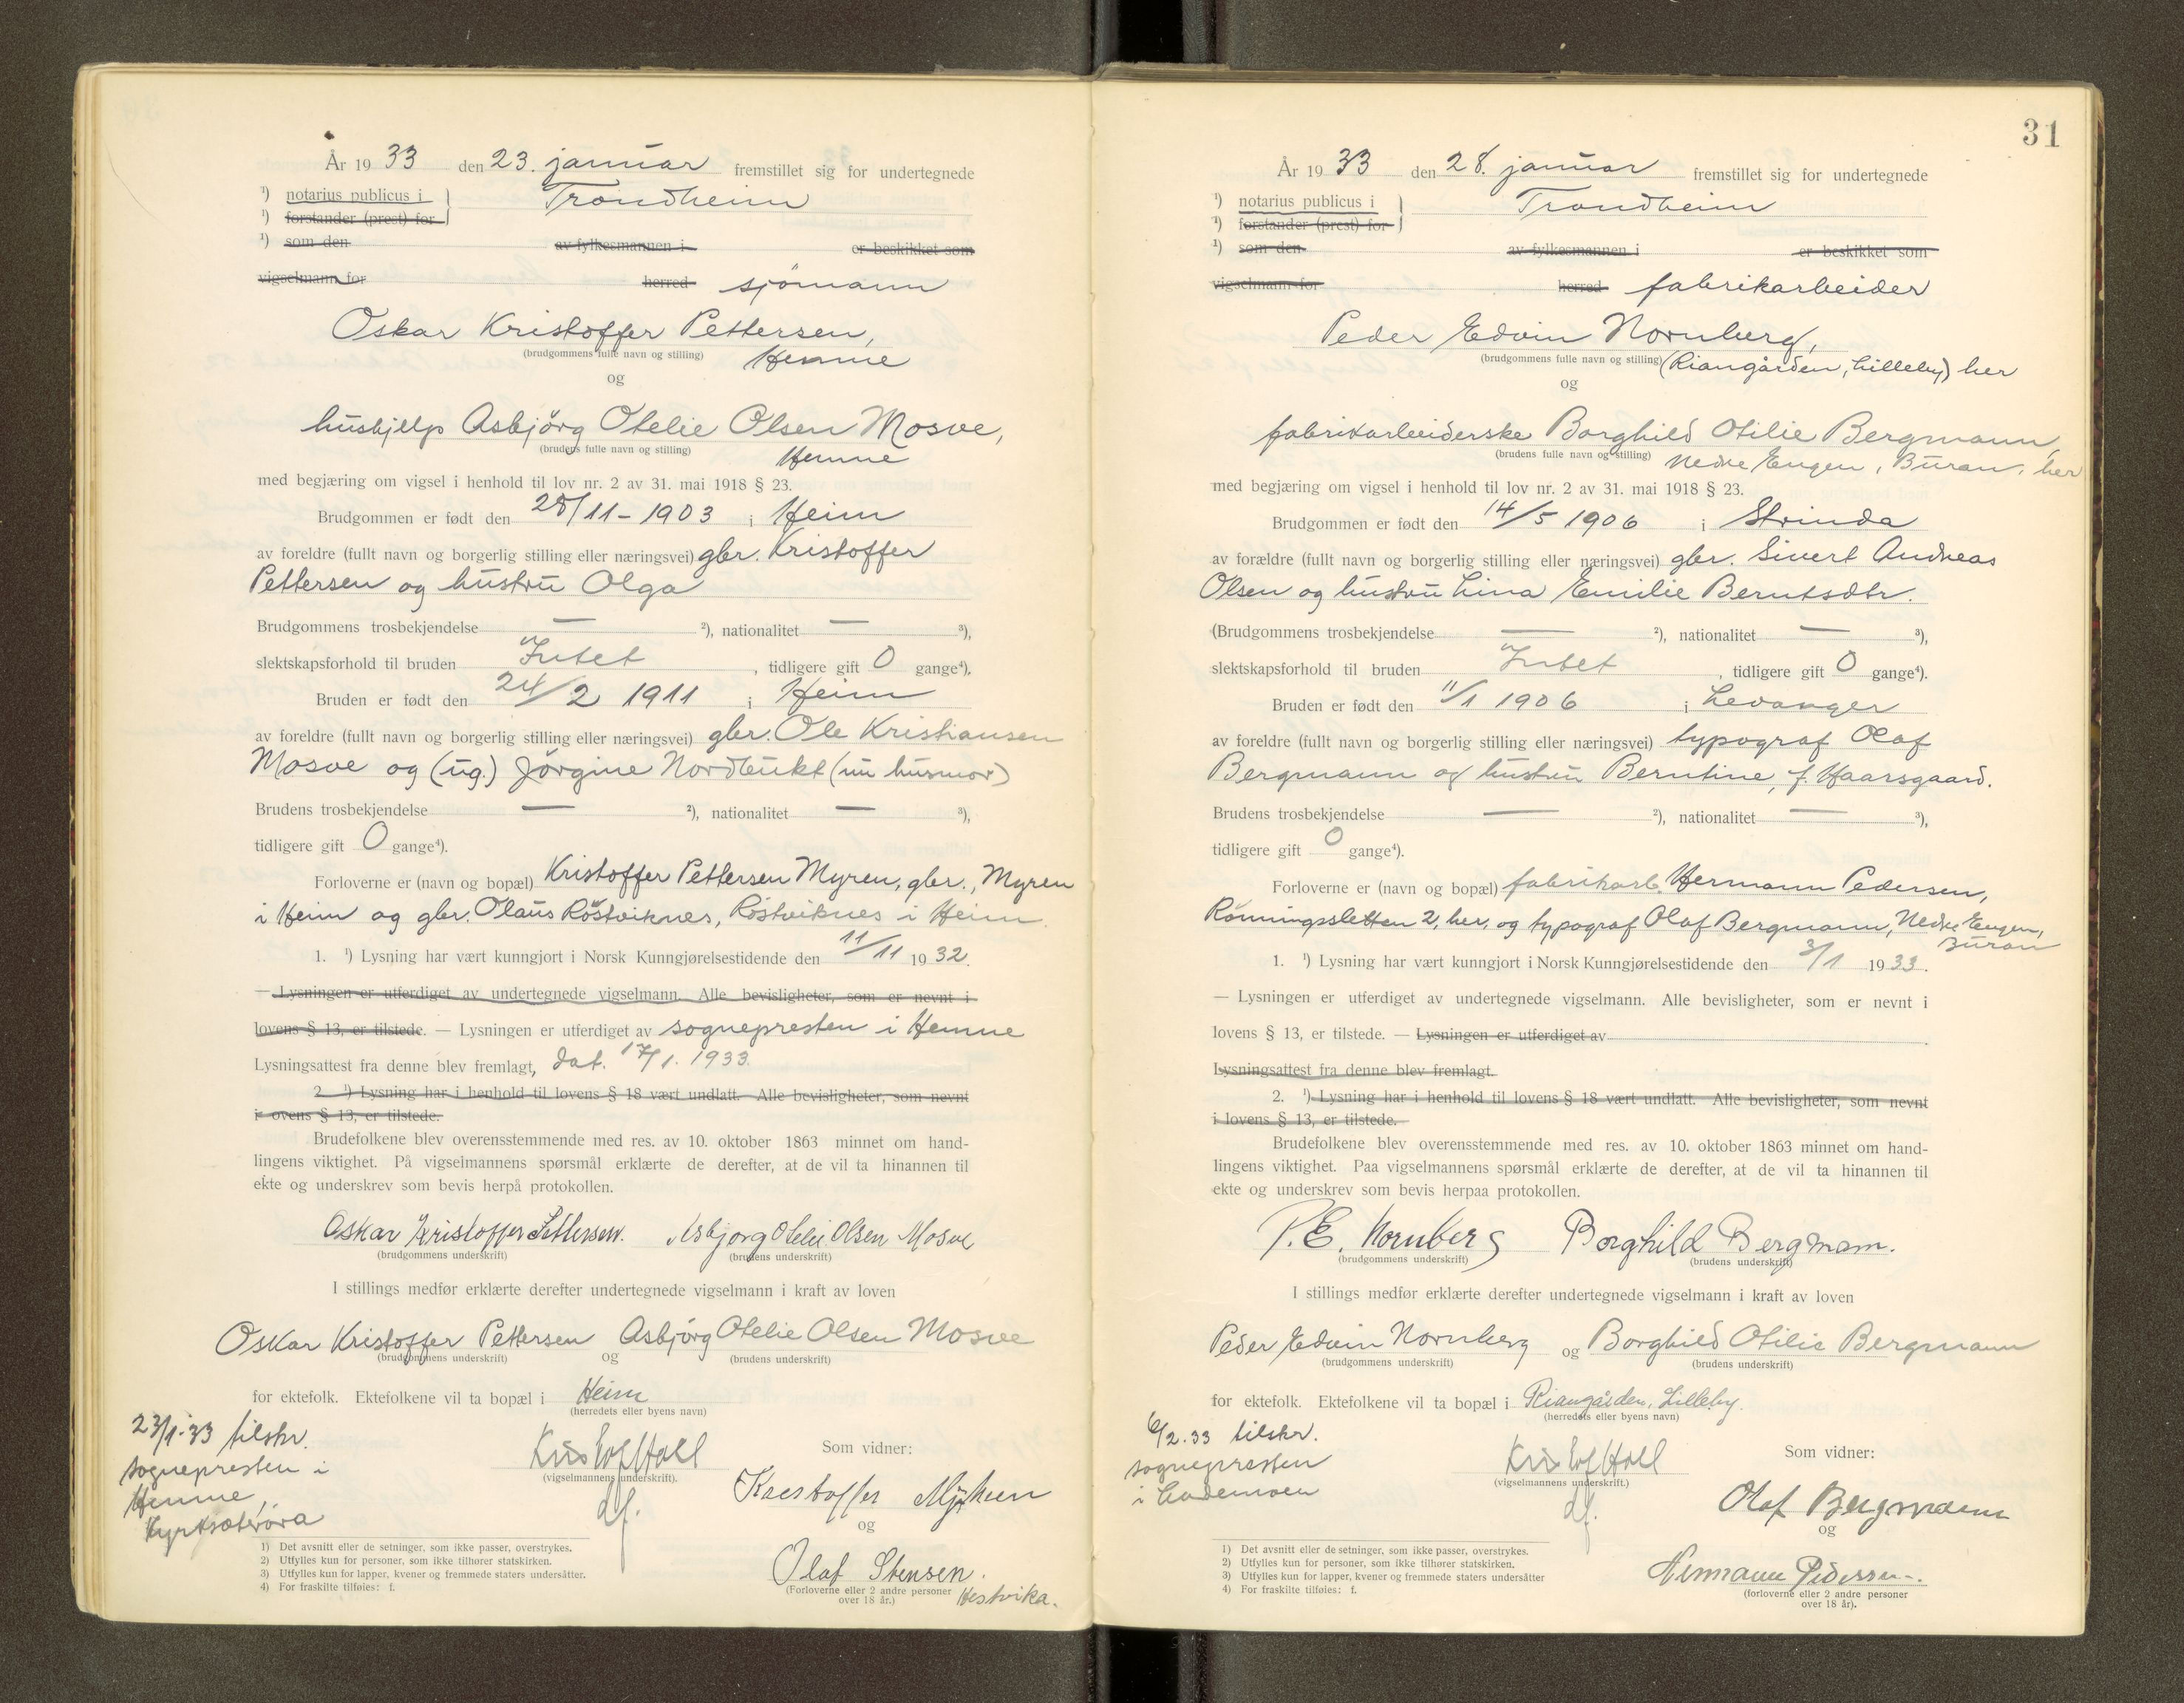 År 1933 den 23. januar fremstillet sig for undertegnede
¹) notarius publicus i } Trondheim
¹) forstander (prest) for
¹) som den av fylkesmannen i er beskikket som
vigselmann for herred sjömann
Oskar Kristoffer Pettersen,
(brudgommens fulle navn og stilling) Hemne
og
hushjelp Asbjörg Otelie Olsen Mosve,
(brudens fulle navn og stilling) Hemne
med begjæring om vigsel i henhold til lov nr. 2 av 31. mai 1918 § 23.
Brudgommen er født den 28/11-1903 i Heim
av foreldre (fullt navn og borgerlig stilling eller næringsvei) gbr. Kristoffer
Pettersen og hustru Olga
Brudgommens trosbekjendelse — ²), nationalitet — ³),
slektskapsforhold til bruden Intet, tidligere gift 0 gange⁴).
Bruden er født den 24/2 1911 i Heim
av foreldre (fullt navn og borgerlig stilling eller næringsvei) gbr. Ole Kristiansen
Mosve og (ug.) Jörgine Nordbukt (nu husmor)
Brudens trosbekjendelse — ²), nationalitet — ³),
tidligere gift 0 gange⁴).
Forloverne er (navn og bopæl) Kristoffer Pettersen Myren, gbr., Myren
i Heim og gbr. Olaus Röstviknes, Röstviknes i Heim.
1. ¹) Lysning har vært kunngjort i Norsk Kunngjørelsestidende den 11/11 1932.
— Lysningen er utferdiget av undertegnede vigselmann. Alle bevisligheter, som er nevnt i
lovens § 13, er tilstede. — Lysningen er utferdiget av sognepresten i Hemne
Lysningsattest fra denne blev fremlagt, dat. 17/1. 1933.
2. ¹) Lysning har i henhold til lovens § 18 vært undlatt. Alle bevisligheter, som nevnt
i ovens § 13, er tilstede.
Brudefolkene blev overensstemmende med res. av 10. oktober 1863 minnet om hand-
lingens viktighet. På vigselmannens spørsmål erklærte de derefter, at de vil ta hinannen til
ekte og underskrev som bevis herpå protokollen.
Oskar Kristoffer Pettersen. Asbjorg Otelie Olsen Mosve
(brudgommens underskrift) (brudens underskrift)
I stillings medfør erklærte derefter undertegnede vigselmann i kraft av loven
Oskar Kristoffer Pettersen og Asbjörg Otelie Olsen Mosve
(brudgommens underskrift) (brudens underskrift)
for ektefolk. Ektefolkene vil ta bopæl i Heim
(herredets eller byens navn)
23/1-33 tilskr.
sognepresten i
Hemne,
Kyrksæterøra
Kristof Hall
(vigselmannens underskrift).
df.
Som vidner:
Kristoffer Myhren
og
Olaf Stensen.
(Forloverne eller 2 andre personer over 18 år.) Hestvika.
1) Det avsnitt eller de setninger, som ikke passer, overstrykes.
2) Utfylles kun for personer, som ikke tilhører statskirken.
3) Utfylles kun for lapper, kvener og fremmede staters undersåtter.
4) For fraskilte tilføies: f.
31
År 1933 den 28. januar fremstillet sig for undertegnede
¹) notarius publicus i } Trondheim
¹) forstander (prest) for
¹) som den av fylkesmannen i er beskikket som
vigselmann for herred fabrikarbeider
Peder Edvin Nornberg,
(brudgommens fulle navn og stilling) (Riangården, Lilleby) her
og
fabrikarbeiderske Borghild Otilie Bergmann,
(brudens fulle navn og stilling) Nedre Engen, Buran, her
med begjæring om vigsel i henhold til lov nr. 2 av 31. mai 1918 § 23.
Brudgommen er født den 14/5 1906 i Strinda
av forældre (fullt navn og borgerlig stilling eller næringsvei) gbr. Sivert Andreas
Olsen og hustru Lina Emilie Berntsdtr.
(Brudgommens trosbekjendelse — ²), nationalitet — ³),
slektskapsforhold til bruden Intet, tidligere gift 0 gange⁴).
Bruden er født den 11/1 1906 i Levanger
av foreldre (fullt navn og borgerlig stilling eller næringsvei) typograf Olaf
Bergmann og hustru Berntine, f. Haarsgaard.
Brudens trosbekjendelse — ²), nationalitet — ³),
tidligere gift 0 gange⁴).
Forloverne er (navn og bopæl) fabrikarb. Hermann Pedersen,
Rönningsletten 2, her, og typograf Olaf Bergmann, Nedre Engen,
Buran
1. ¹) Lysning har vært kunngjort i Norsk Kunngjørelsestidende den 3/1 1933.
— Lysningen er utferdiget av undertegnede vigselmann. Alle bevisligheter, som er nevnt i
lovens § 13, er tilstede. — Lysningen er utferdiget av
Lysningsattest fra denne blev fremlagt.
2. ¹) Lysning har i henhold til lovens § 18 vært undlatt. Alle bevisligheter, som nevnt
i lovens § 13, er tilstede.
Brudefolkene blev overensstemmende med res. av 10. oktober 1863 minnet om hand-
lingens viktighet. Paa vigselmannens spørsmål erklærte de derefter, at de vil ta hinannen til
ekte og underskrev som bevis herpaa protokollen.
P. E. Nornberg Borghild Bergmann.
(brudgommens underskrift) (brudens underskrift)
I stillings medfør erklærte derefter undertegnede vigselmann i kraft av loven
Peder Edvin Nornberg og Borghild Otilie Bergmann
(brudgommens underskrift) (brudens underskrift)
for ektefolk. Ektefolkene vil ta bopæl i Riangården, Lilleby.
(herredets eller byens navn)
6/2.33 tilskr.
sognepresten
i Lademoen
Kristof Hall
(vigselmannens underskrift.)
df.
Som vidner:
Olaf Bergmann
og
Hermann Pedersen.
(forloverne eller 2 andre personer over 18 år).
1) Det avsnitt eller de setninger, som ikke passer, overstrykes.
2) Utfylles kun for personer, som ikke tilhører statskirken.
3) Utfylles kun for lapper, kvener og fremmede staters undersåtter
4) For fraskilte tilføies: f.